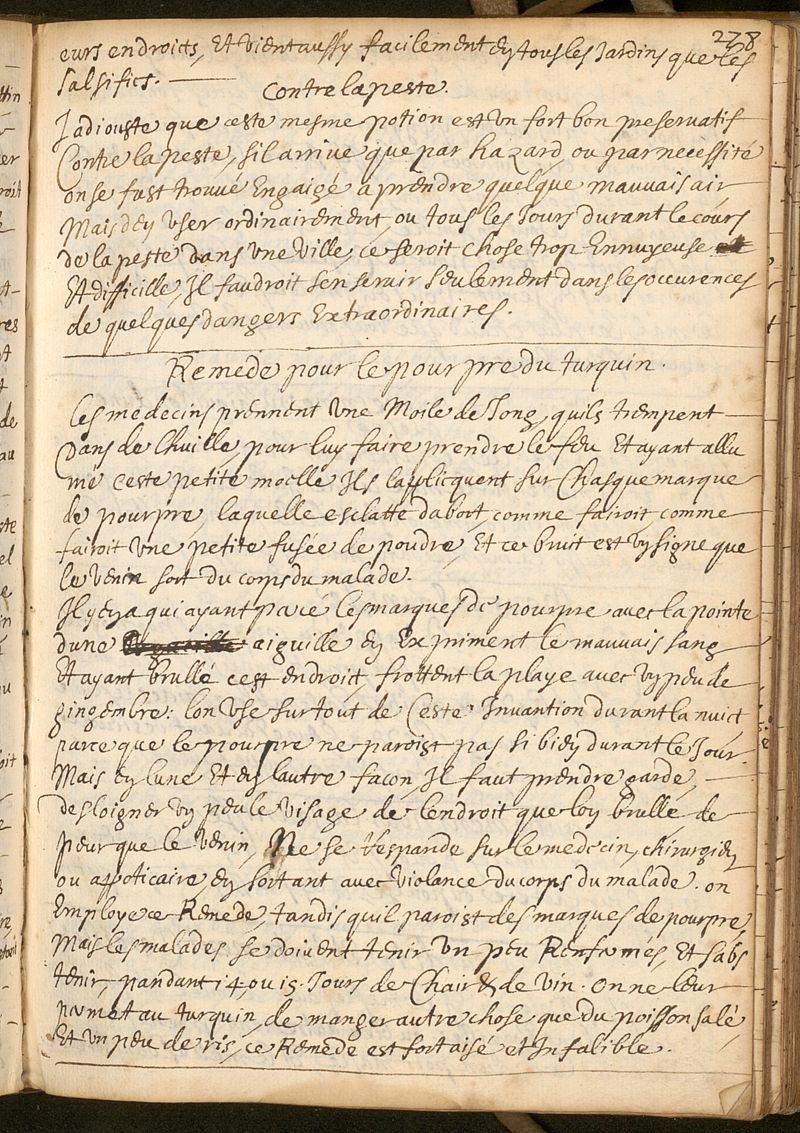 278
eurs endroicts, Et vient aussy facilement en tous les Jardins que les
salsifics.
Contre la peste.
Jadiouste que ceste mesme potion est un fort bon preservatif
Contre la peste, sil arrive que par hazard, ou par necessité
on se fust trouvé Engaigé a prendre quelque mauvais air
Mais den user ordinairement, ou tous les Jours durant le cours
de la peste dans une Ville, ce seroit chose trop Ennuyeuse
Et difficille, Il faudroit sen servir seulement dans les occurences
de quelques dangers Extraordinaires.
Remede pour le pourpre du turquin.
Les medecins prennent une Moile de Jong, quils trempent
Dans de lhuille pour luy faire prendre le feu Et ayant allu
mé ceste petite moelle Ils laplicquent sur Chasque marque
de pourpre, laquelle esclatte dabort, comme fairoit, comme
fairoit une petite fusée de poudre, Et ce bruit est un signe que
le venin sort du corps du malade.
Il y en a qui ayant parcé les marques de pourpre avec la pointe
dune aiguille en Expriment le mauvais sang
Et ayant brullé cest endroict, frottent la playe avec un peu de
gingembre: lon use sur tout de Ceste Invantion durant la nuict
parce que le pourpre ne paroist pas si bien durant le Jour.
Mais en lune Et en lautre facon, Il faut prendre garde,
desloigner un peu le visage de lendroit que lon brullé, de
peur que le venin, Ne se respande sur le medecin, chirurgien
ou appoticaire, en sortant avec violance du corps du malade. on
Employe ce Remede, tandis quil paroist des marques de pourpre,
Mais les malades se doivent tenir un peu Renfermés, Et sabs
tenir, pandant 14, ou 15. Jours de Chair & de vin. on ne leur
permet au turquin, de manger autre chose que du poisson salé,
Et un peu de ris, ce Remede est fort aisé et Infalible.